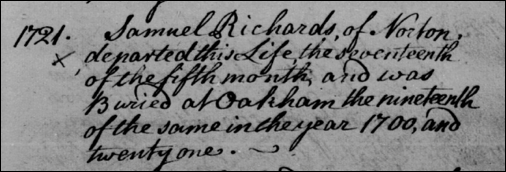 1721. Samuel Richards, of Norton,
departed this Life, the seventeenth
of the fifth month, and was
Buried at Oakham the nineteenth
of the same in the year 1700, and
twenty one.